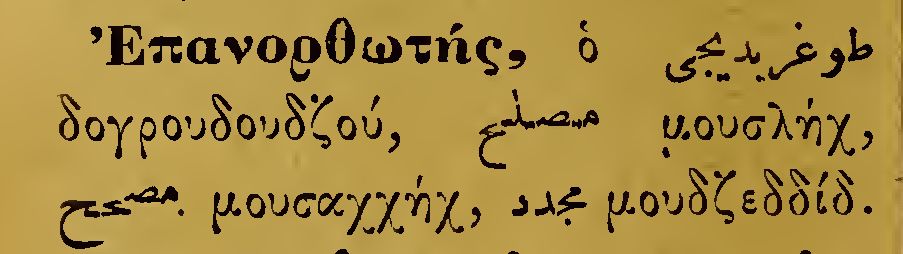 Ἐπανορθωτής, ὁ طوغريديجى
δογρουδουδζού, مصلح μουσλήχ,
مصحح μουσαχχήχ, مجدد μουδζεδδίδ.